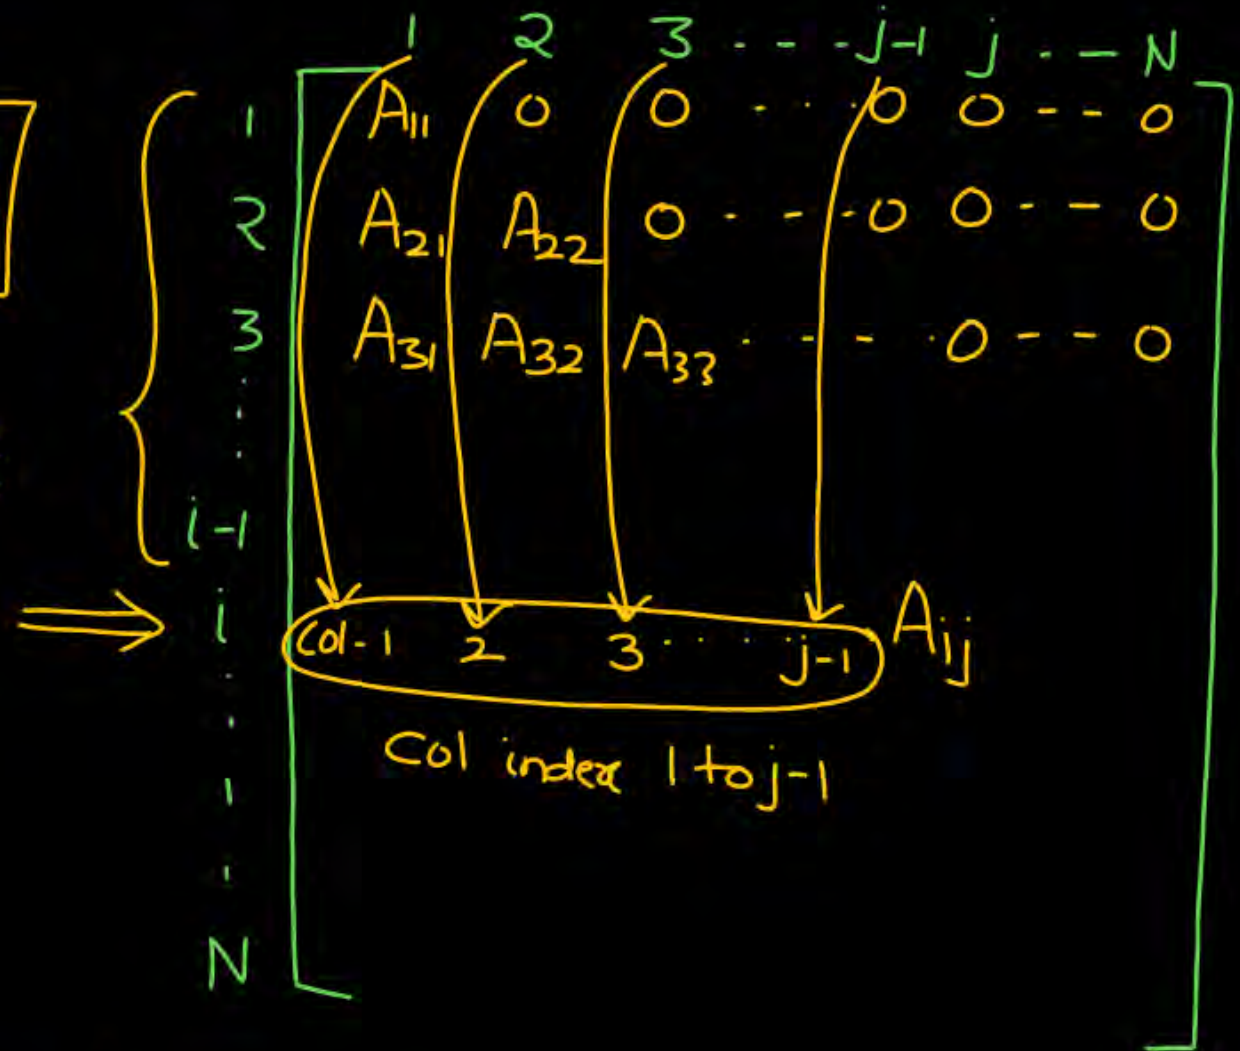 1 2 3 - - - j-1 j - - - N
1 A11 0 0 - - - 0 0 - - - 0
2 A21 A22 0 - - - 0 0 - - - 0
3 A31 A32 A33 - - - - 0 - - - 0
i-1
i Col-1 2 3 . . . . j-1 Aij
Col index 1 to j-1
N